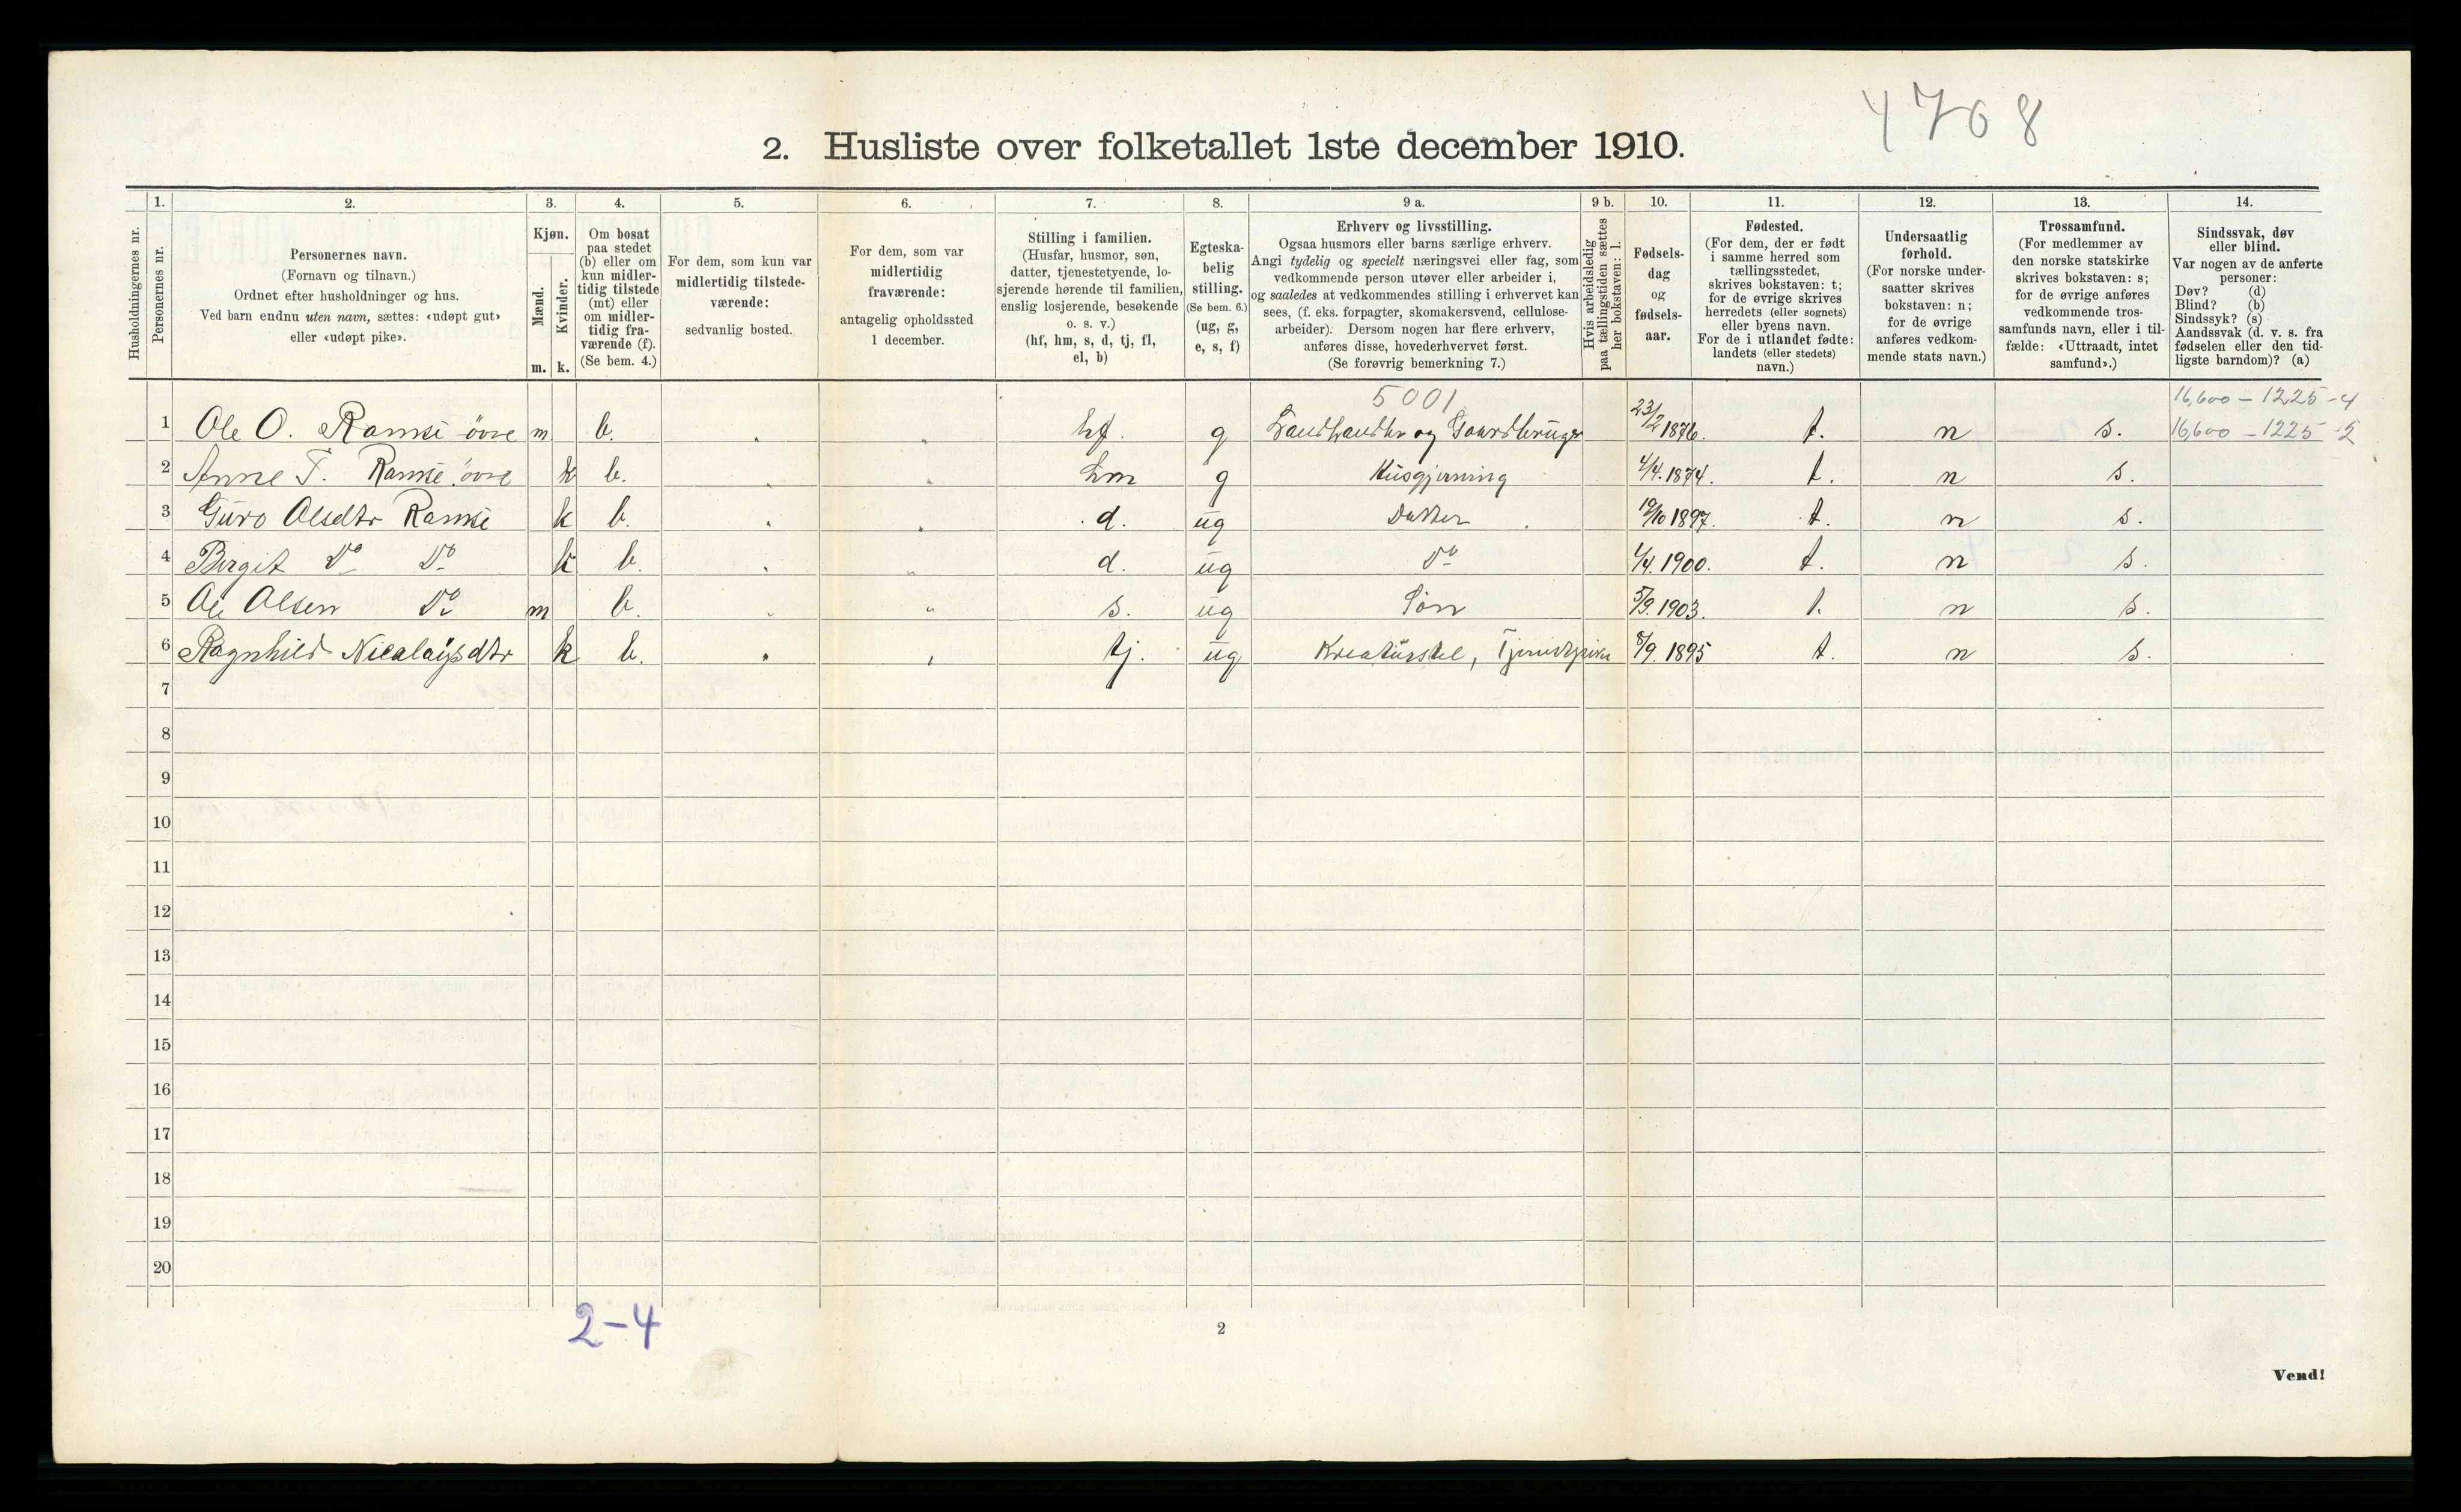 4768
2. Husliste over folketallet 1ste december 1910.
Husholdningernes nr.
1.
Personernes nr.
2.
Personernes navn.
(Fornavn og tilnavn.)
Ordnet efter husholdninger og hus.
Ved barn endnu uten navn, sættes: «udøpt gut»
eller «udøpt pike».
3.
Kjøn.
Mænd.
Kvinder.
m. k.
4.
Om bosat
paa stedet
(b) eller om
kun midler-
tidig tilstede
(mt) eller
om midler-
tidig fra-
værende (f).
(Se bem. 4.)
5.
For dem, som kun var
midlertidig tilstede-
værende:
sedvanlig bosted.
6.
For dem, som var
midlertidig
fraværende:
antagelig opholdssted
1 december.
7.
Stilling i familien.
(Husfar, husmor, søn,
datter, tjenestetyende, lo-
sjerende hørende til familien,
enslig losjerende, besøkende
o. s. v.)
(hf, hm, s, d, tj, fl,
el, b)
8.
Egteska-
belig
stilling.
(Se bem. 6.)
(ug, g,
e, s, f)
9 a.
Erhverv og livsstilling.
Ogsaa husmors eller barns særlige erhverv.
Angi tydelig og specielt næringsvei eller fag, som
vedkommende person utøver eller arbeider i,
og saaledes at vedkommendes stilling i erhvervet kan
sees, (f. eks. forpagter, skomakersvend, cellulose-
arbeider). Dersom nogen har flere erhverv,
anføres disse, hovederhvervet først.
(Se forøvrig bemerkning 7.)
9 b.
Hvis arbeidsledig
paa tællingstiden sættes
her bokstaven: l.
10.
Fødsels-
dag
og
fødsels-
aar.
11.
Fødested.
(For dem, der er født
i samme herred som
tællingsstedet,
skrives bokstaven: t;
for de øvrige skrives
herredets (eller sognets)
eller byens navn.
For de i utlandet fødte:
landets (eller stedets)
navn.)
12.
Undersaatlig
forhold.
(For norske under-
saatter skrives
bokstaven: n;
for de øvrige
anføres vedkom-
mende stats navn.)
13.
Trossamfund.
(For medlemmer av
den norske statskirke
skrives bokstaven: s;
for de øvrige anføres
vedkommende tros-
samfunds navn, eller i til-
fælde: «Uttraadt, intet
samfund».)
14.
Sindssvak, døv
eller blind.
Var nogen av de anførte
personer:
Døv? (d)
Blind? (b)
Sindssyk? (s)
Aandssvak (d. v. s. fra
fødselen eller den tid-
ligste barndom)? (a)
5001 16,600 – 1225 – 4
1 Ole O. Ramsi övre m b. " " hf. g Landhandler og Gaardbruger 23/2 1876. t. n s. 16,600 – 1225 – 2
2 Anne T. Ramsi övre k b. " " hm g Husgjerning 4/4. 1874. t. n s.
3 Guro Olsdtr Ramsi k b. " " d. ug Datter 19/10 1897. t. n s.
4 Birgit Do Do k b. " " d. ug Do 1/4. 1900. t. n s.
5 Ole Olsen Do m b. " " s. ug Sön 5/9. 1903. t. n s.
6 Ragnhild Nicolaysdtr k b. " " tj. ug Kreaturstel, Tjenestpike 8/9. 1895 t. n s.
7
8
9
10
11
12
13
14
15
16
17
18
19
20
2–4
2
Vend!